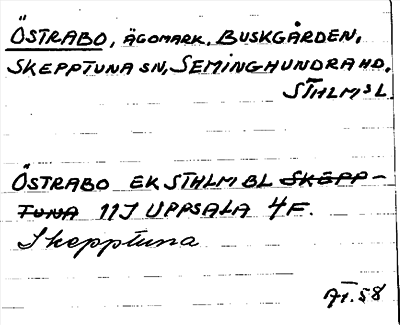 ÖSTRABO, ÄGOMARK, BUSKGÅRDEN,
SKEPPTUNA SN, SEMINGHUNDRA HD,
STHLMS L.
ÖSTRABO EK STHLM BL SKEPP-
TUNA 11I UPPSALA 4F.
Skepptuna
58